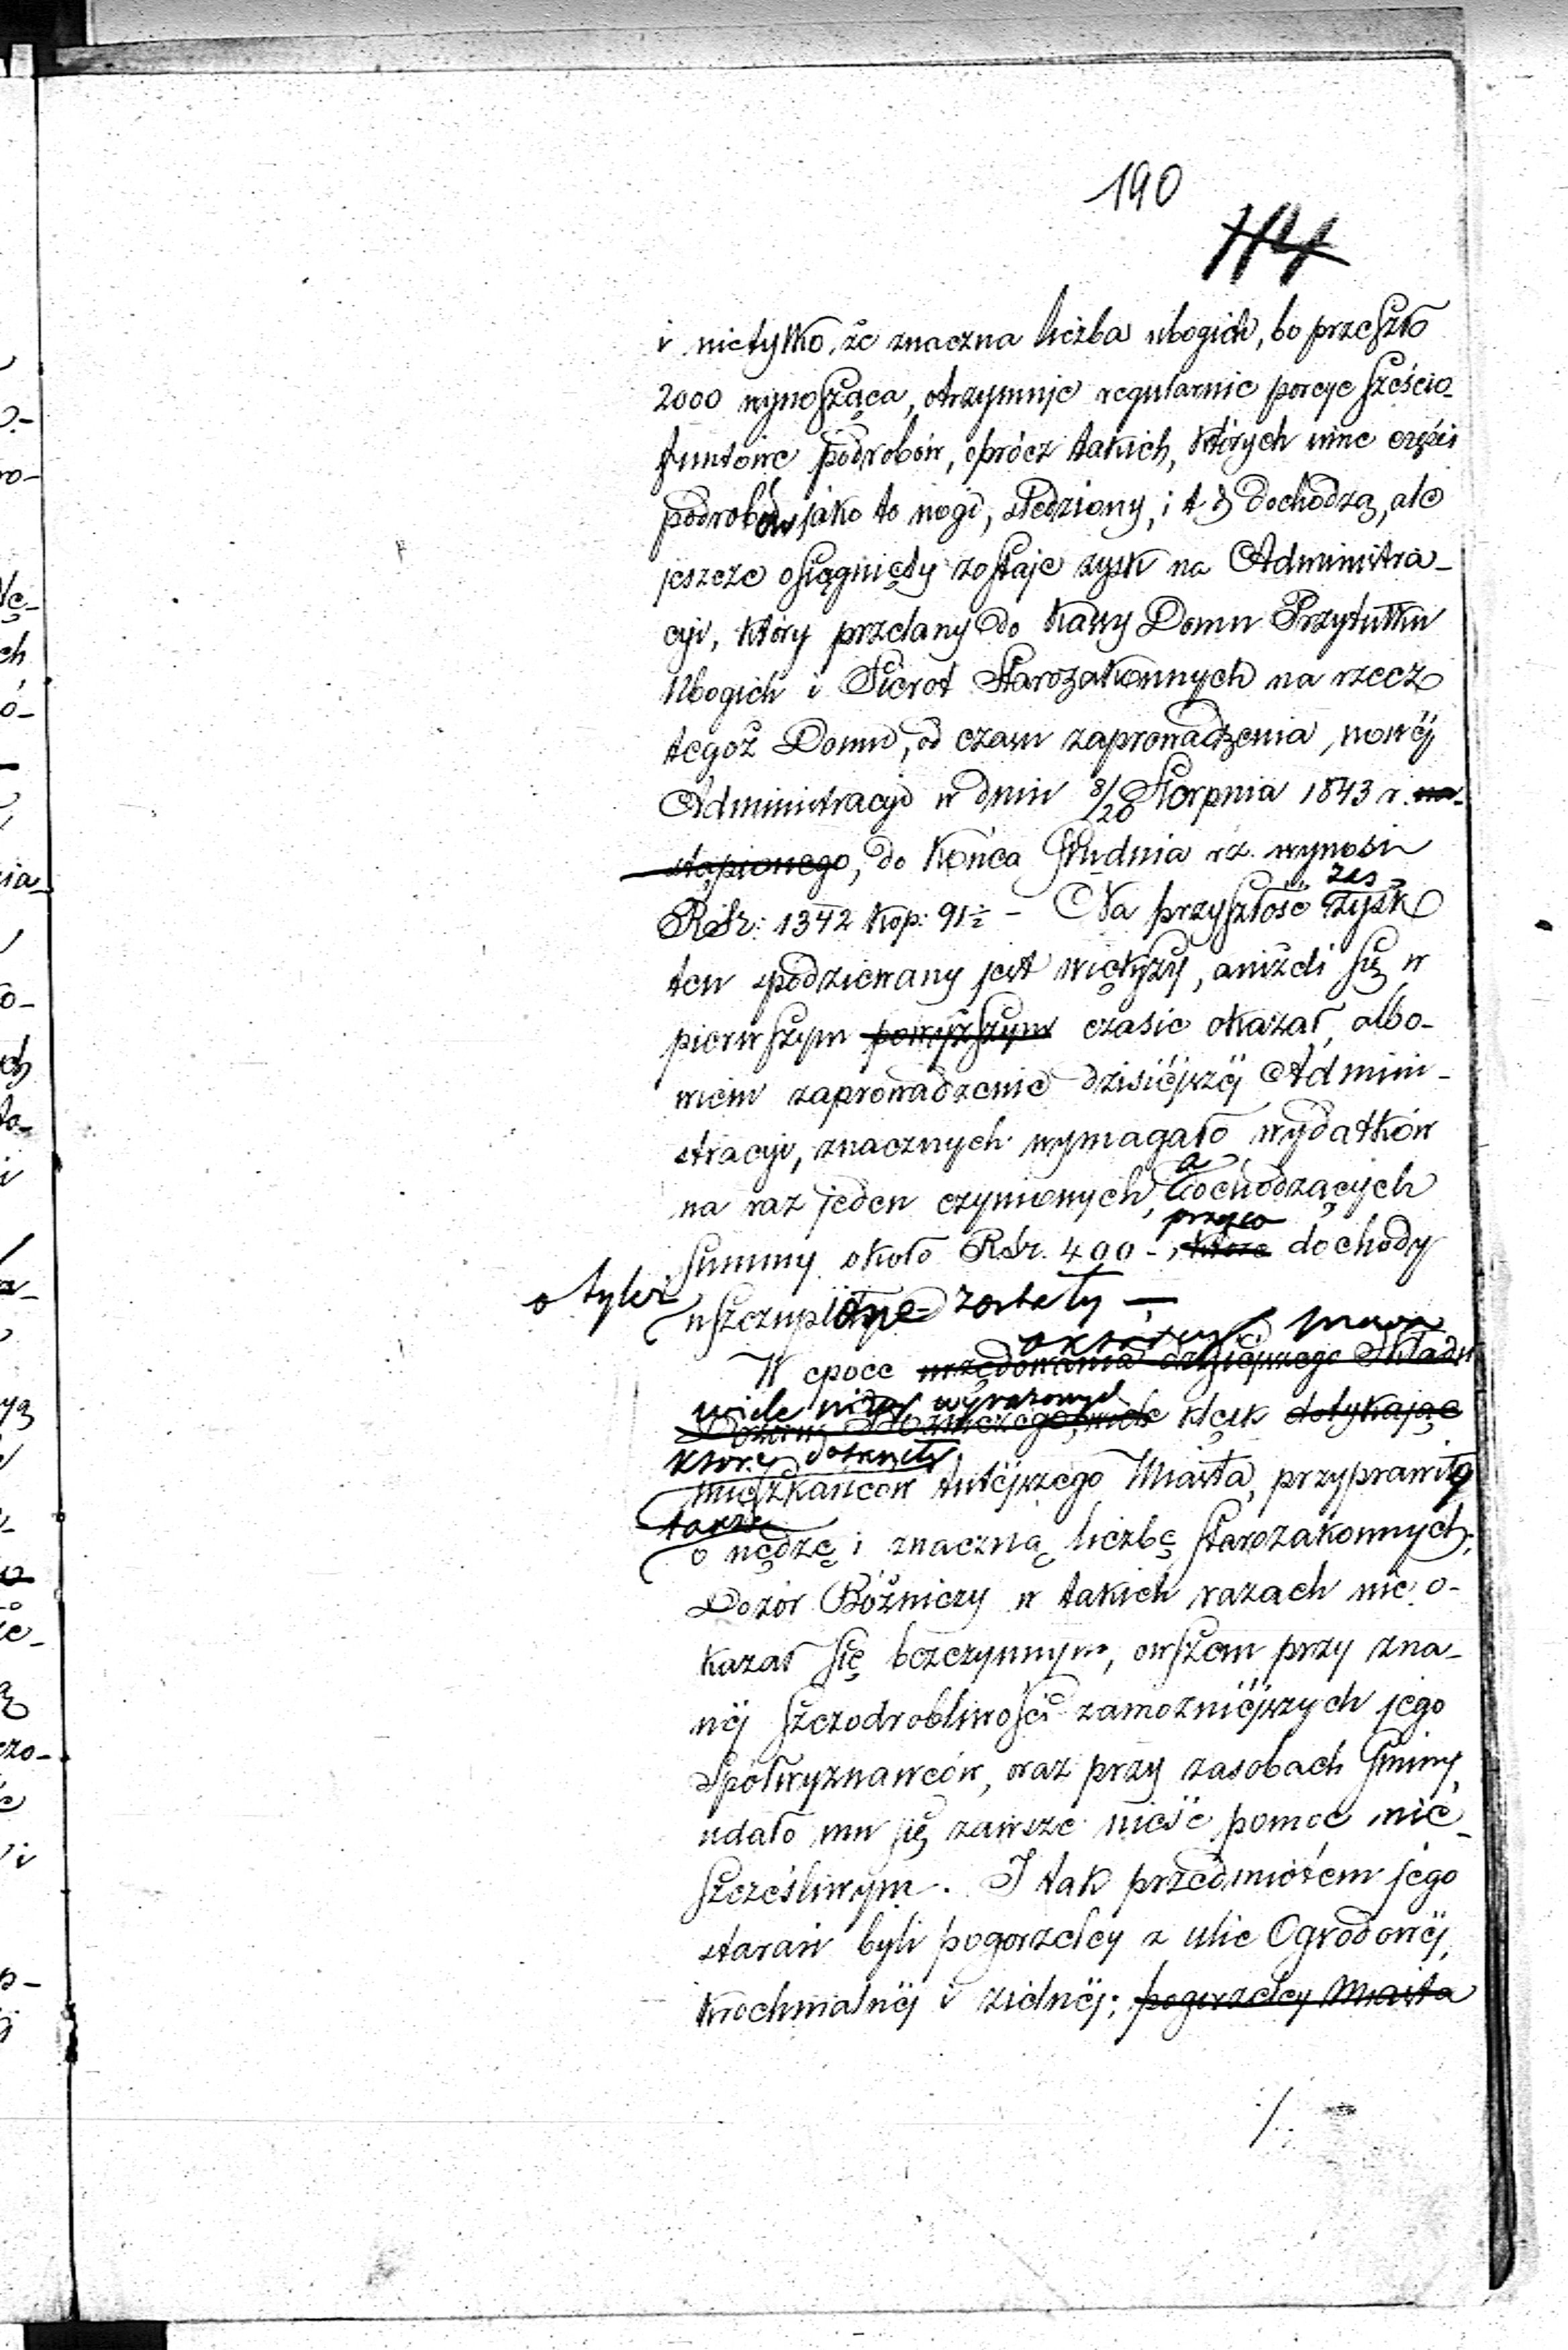 190
114
i nietylko, że znaczna liczba ubogich, bo przeszło
2000 wynosząca, otrzymuje regularnie porcye sześcio-
funtowe podrobów, oprócz takich, których inne części
podrobów jako to nogi, śledziony, i t d dochodzą, ale
jeszcze osiągnięty zostaje zysk na Administra-
cyi, który przelany do Kassy Domu Przytułku
Ubogich i Sierot Starozakonnych na rzecz
tegoż Domu, od czasu zaprowadzenia, nowéj
Administracyi w dniu 8/20 Sierpnia 1843 r. na-
stąpionego, do końca Grudnia rz. wynosi
zaś
RSr: 1342 kop: 91½ - Na przyszłość zysk
ten spodziewany jest większy, aniżeli się w
pierwszym powyższym czasie okazał, albo-
wiem zaprowadzenie dzisiéjszéj Admini-
stracyi, znacznych wymagało wydatków
a
na raz jeden czynionych, dochodzących
przezco
summy około RSr. 400 -, które dochody
o tyleż
uszczuplone zostały —
o któréj mowa
W epoce urzędowania dzisiéjszego Składu
wiele niżéj wyrażonych
Dozoru Bożniczego, wiele klęsk dotykające
które dotknęły
mieszkańców tutéjszego Miasta, przyprawiły
także
o nędzę i znaczną liczbę Starozakonnych,
Dozór Bóżniczy w takich razach nie o-
kazał się bezczynnym, owszem przy zna-
néj szczodrobliwości zamożniéjszych jego
Spółwyznawców, oraz przy zasobach Gminy,
udało mu się zawsze nieść pomoc nie-
szcześliwym. I tak przedmiotem jego
starań byli pogorzelcy z ulic Ogrodowéj,
Krochmalnéj i Zielnéj; pogorzelcy Miasta
./.